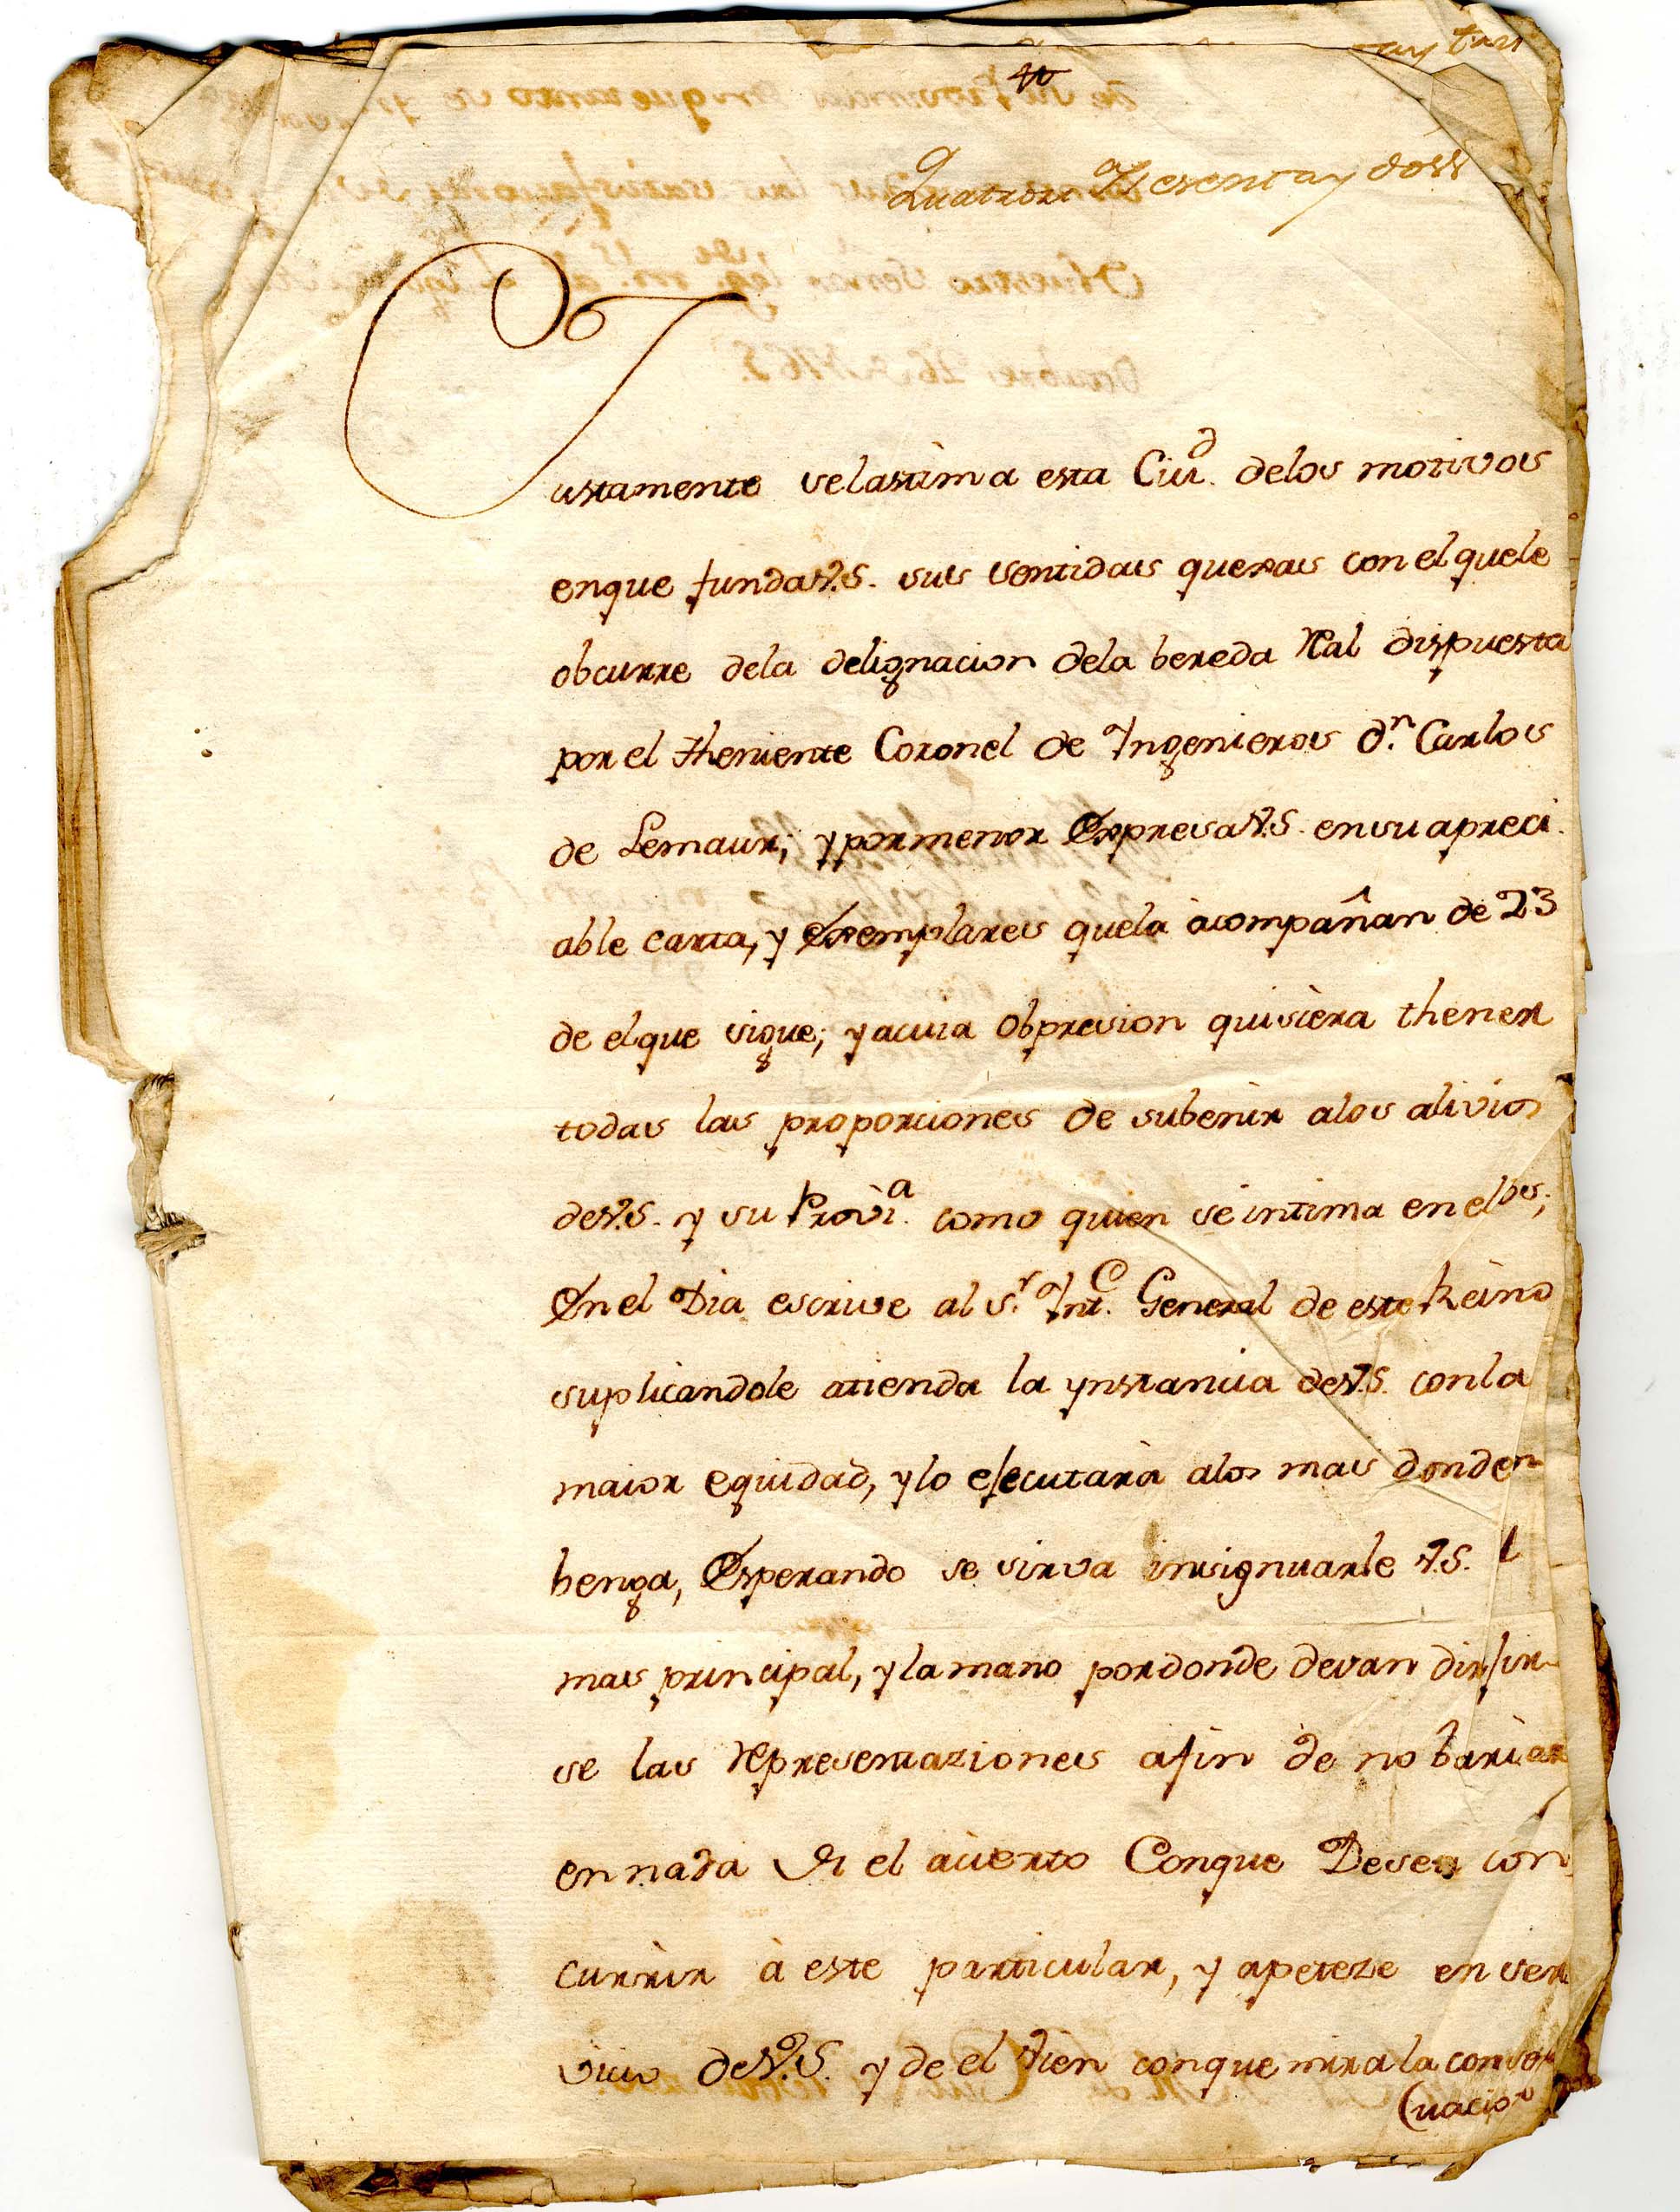 Quatrocientos sesenta y doss
Justamente se lastima esta Ciud. delos motivos
enque funda V.S. sus sentidas quexas con el quele
obcurre dela delignacion dela bereda Real dispuesta
por el theniente Coronel de Ingenieros dn. Carlos
de Lemaur; y pormenor Expresa V.S. ensu apreci-
able carta, y Exemplares quela acompañan de 23
de elque sigue; yacuia obpresion quisièra thener
todas las proporciones de subenir alos alivios
de V.S. y su Provia. como quien se intima en ellos;
En el Dia escrive al Sr. Inte. General de este Reino
suplicandole atienda la ynstancia de V.S. conla
maior equidad, ylo ejecutarà alos mas donden
benga, Esperando se sirva insignuarle V.S. l
mas principal, yla mano pordonde devan dirijir-
se las representaziones afin de no bariar
ennada Si el acierto Conque Desea con
currir à este particular, y apeteze en ser
vicio de V.S. y de el vien conque mira la conser
(uacion